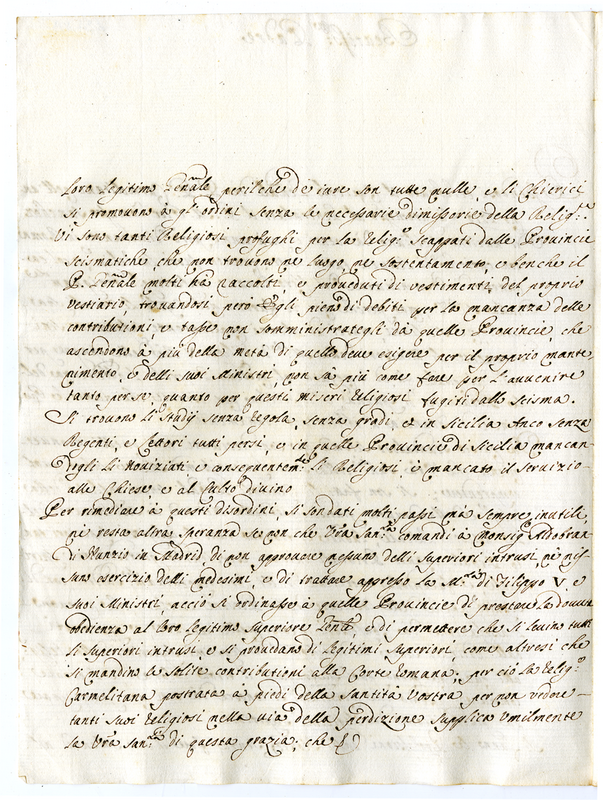 loro legitimo Gen͞ale, perilche de iure son tutte nulle, e li Chierici
si promovono à gl'ordini senza le necessarie dimissorie della Relig.ne
Vi sono tanti Religiosi profughi per la Relig.e scappati dalle Provincie
scismatiche che non trovono ne luogo, ne sostentamento, e benche il
P. Gen͞ale molti hà raccolti, e proveduti di vestimenti del proprio
vestiario, trovandosi però Egli pieno di debiti per la mancanza delle
contributioni, e tasse non somministrategli da quelle Provincie, che
ascendono à più della metà di quello deve esigere per il proprio mante,
nimento, e delli suoi Ministri, non sà più come fare per l'avvenire
tanto per se, quanto per questi miseri Religiosi fugiti dallo scisma.
Si trovono li Studij senza regola, senza gradi, et in Sicilia Anco senza
Regenti, e Lettori tutti persi, e in quelle Provincie di Sicilia mancan-
dogli li Noviziati, e conseguentem.te li Religiosi, è mancato il servizio
alle Chiese, e al Culto divino
Per rimediare à questi disordini, si son dati molti passi mà sempre inutili,
nè resta altra speranza se non che V͞ra San.tà comandi à Monsig.r Aldobran-
di Nunzio in Madrid di non approvare nessuno delli Superiori intrusi, nè nis-
suno esercizio delli medesimi, e di trattare appresso la M.tà di Filippo V, e
suoi Ministri, acciò si ordinasse à quelle Provincie di prestare la dovuta
obedienza al loro legitimo Superiore, e di permettere che si levino tutti
li Superiori intrusi, e si provedano di legitimi Superiori, come altresi che
si mandino le solite contributioni alla Corte Romana; per ciò la Relig.e
Carmelitana postrata à piedi della Santità Vostra per non vedere
tanti suoi Religiosi nella via della perdizione supplica umilmente
la V͞ra San.tà di questa grazia; che